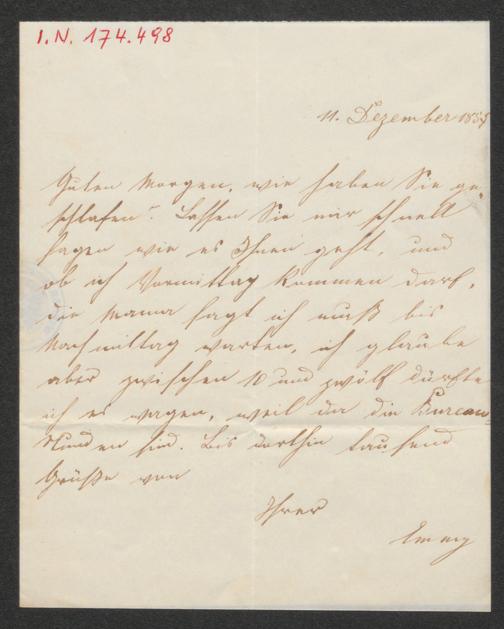 I.N. 174.498
11. Dezember 1859
Guten Morgen, wie haben Sie ge-
schlafen? Lassen Sie mir schnell
sagen wie es Ihnen geht, und
ob ich Vormittag kommen darf,
die Mama sagt ich muß bis
Nachmittag warten, ich glaube
aber zwischen 10 und zwölf dürfte
ich es wagen, weil da die Bureau-
stunden sind. Bis dorthin tausend
Grüße von
Ihrer
Emmy